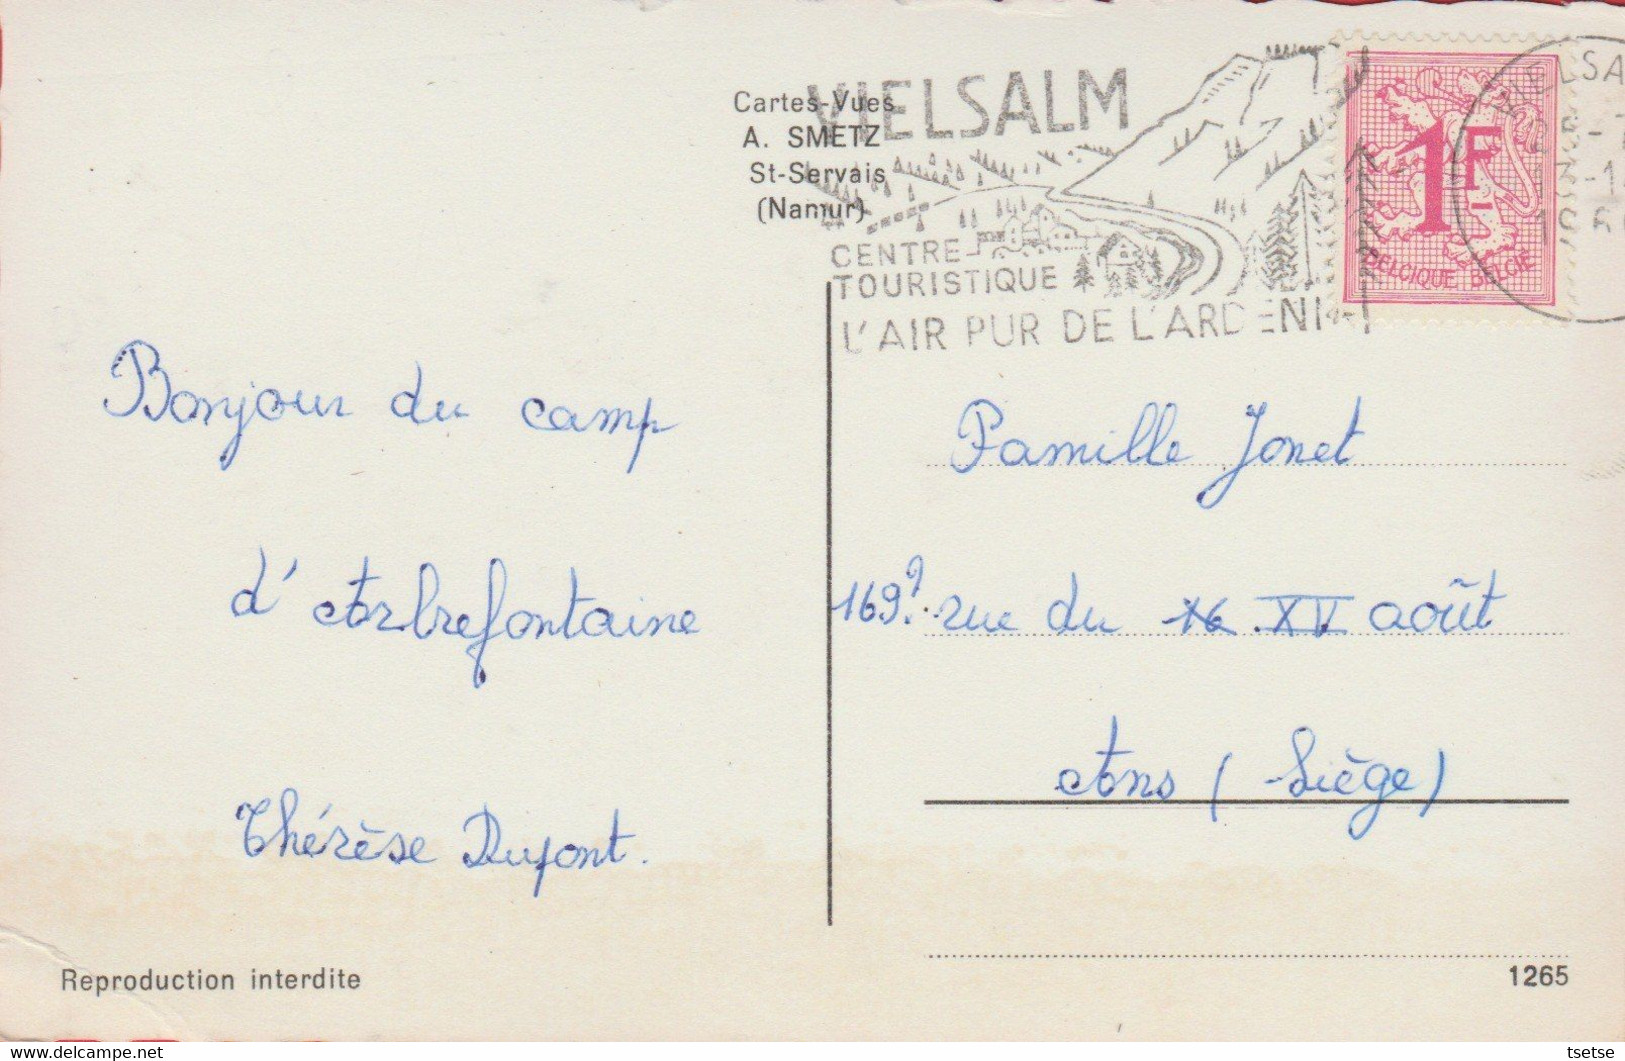 Cartes-Vues
A. SMETZ
St-Servais
(Namur)
VIELSALM
CENTRE
TOURISTIQUE
L'AIR PUR DE L'ARDENNE
1F
BELGIQUE BELGIË
Bonjour du camp
d'Arbrefontaine
Thérèse Dupont.
Famille Jonet
169?. rue du 16 XV août
Ans (Liège)
Reproduction interdite
1265
tsetse